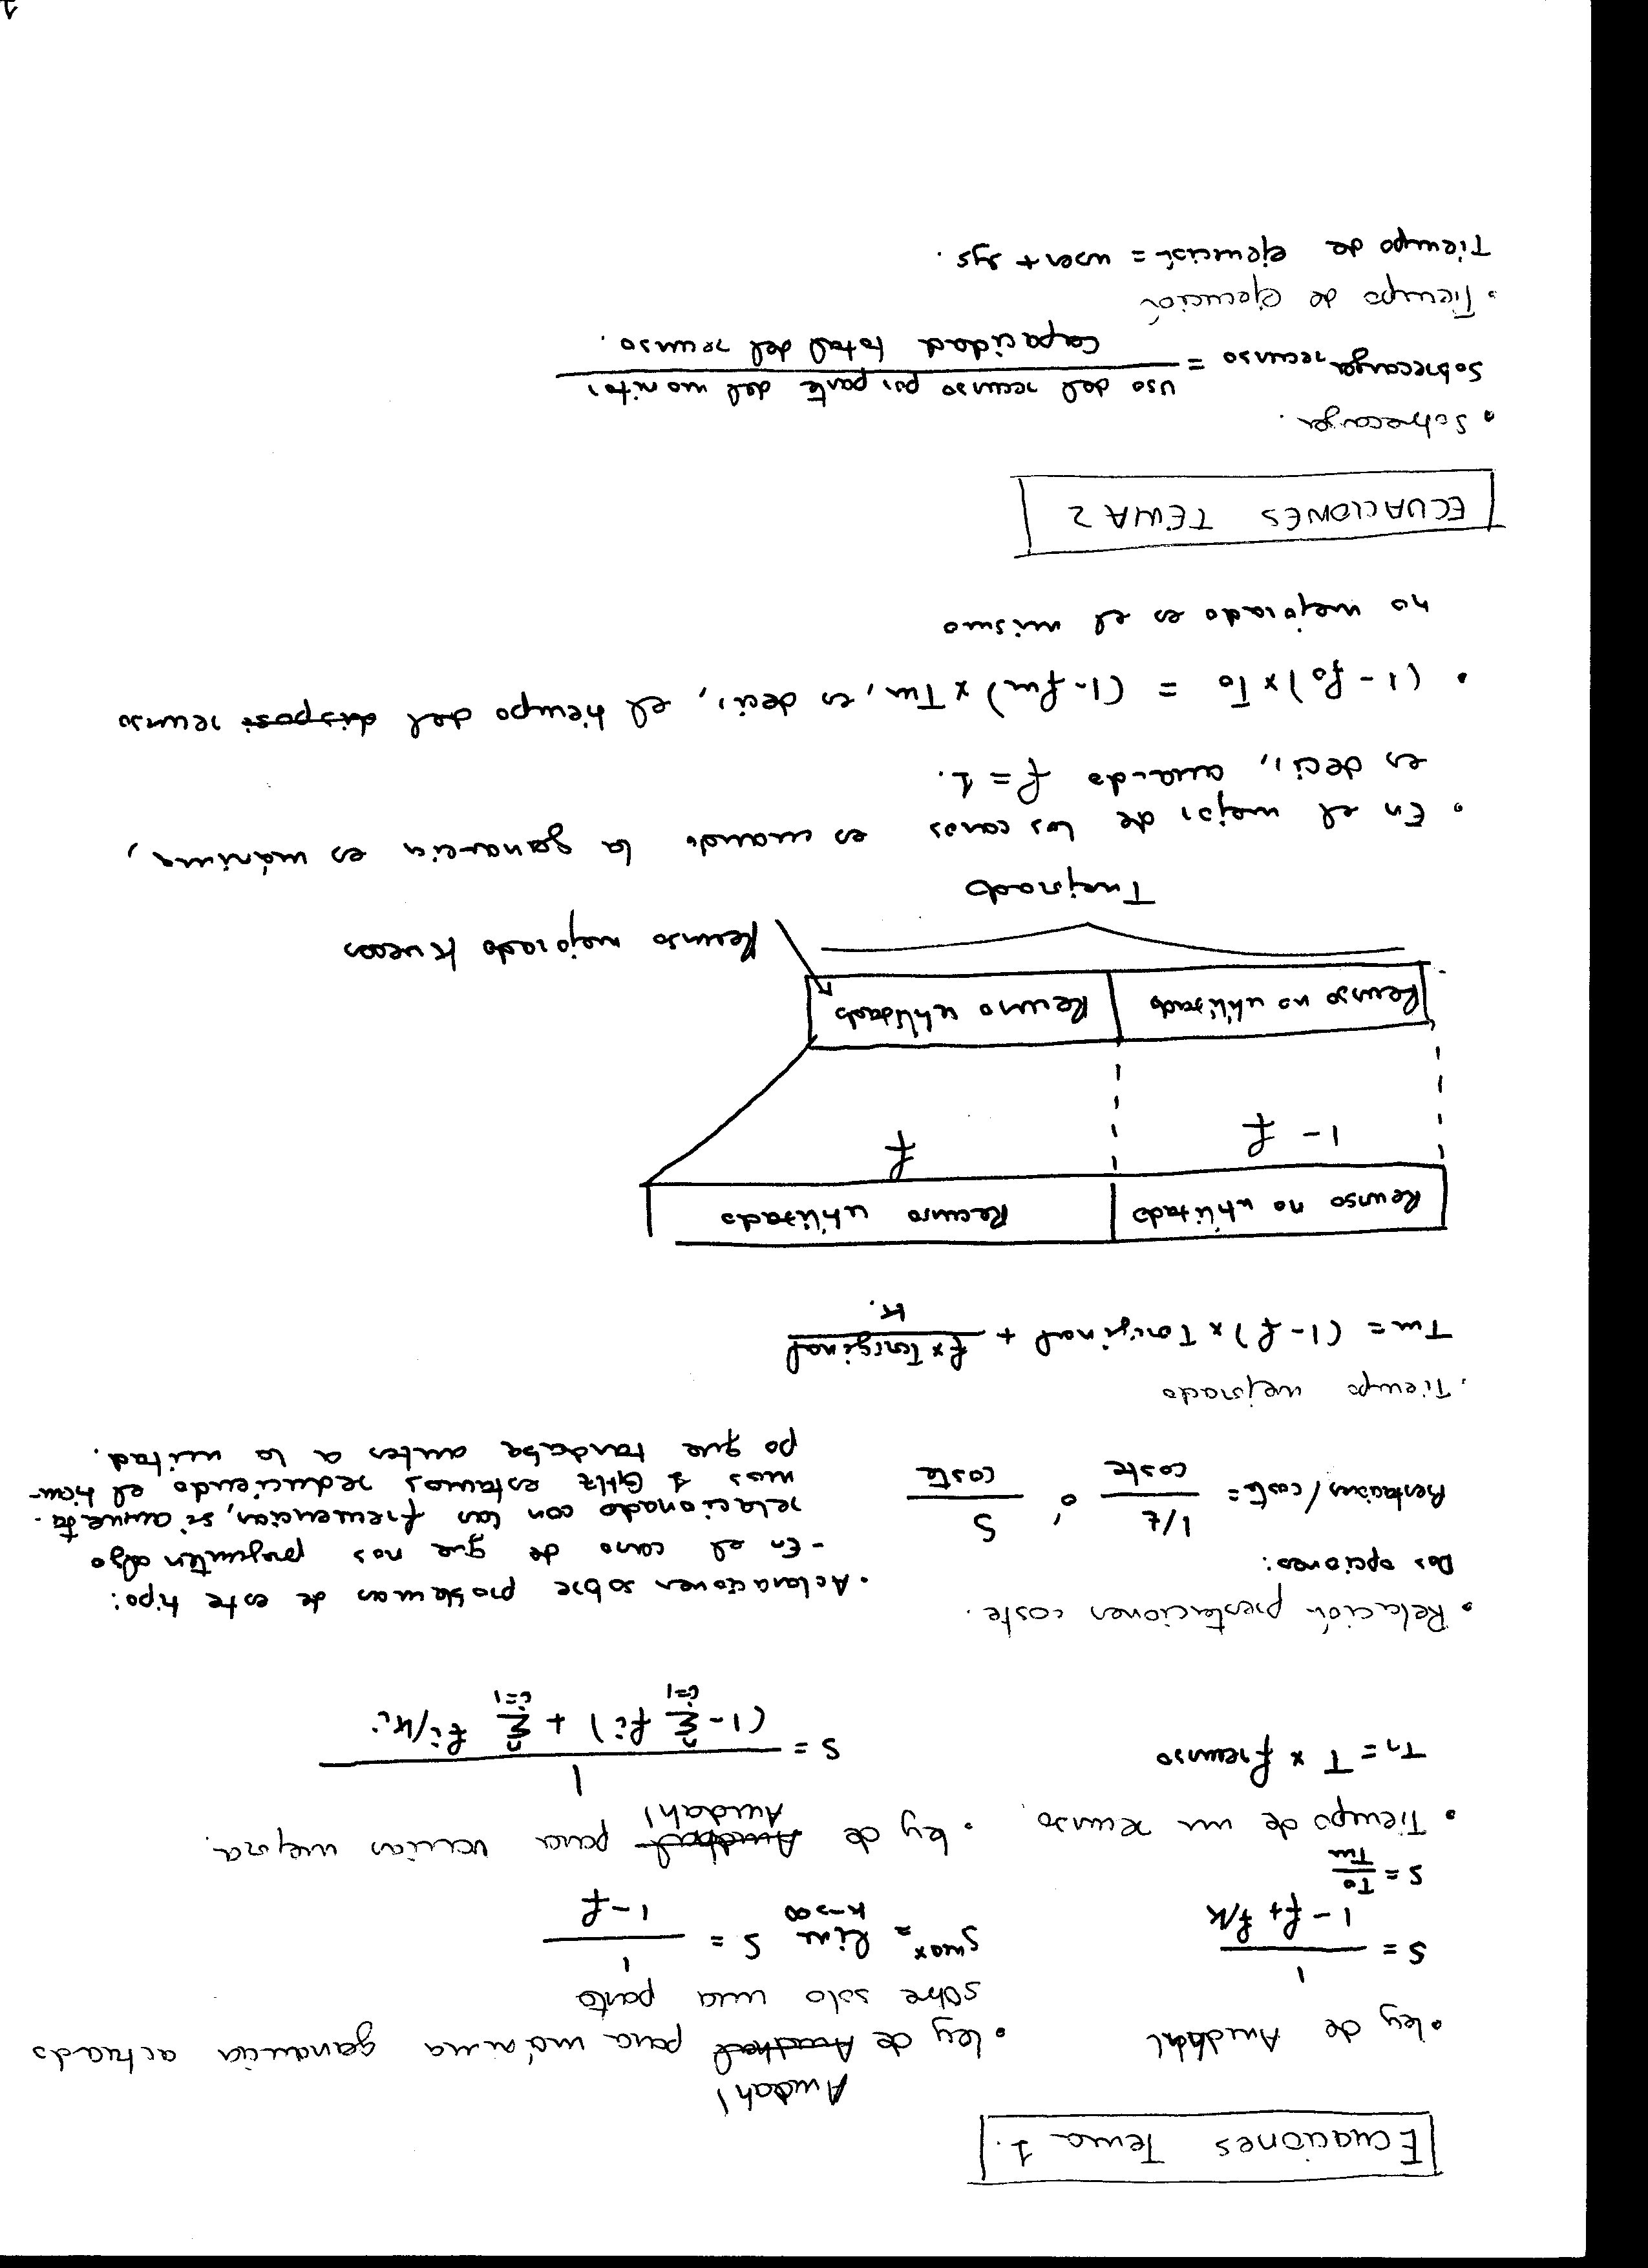 Ecuaciones Tema 1.
• Ley de Amdahl
S = 1 / (1 - f + f/k)
S = To / Tm
• Ley de Amdhal Amdahl para máxima ganancia actuado
sobre solo una parte
S^max = lim k->∞ S = 1 / (1 - f)
• Tiempo de un recurso.
Tr = T x f recurso
• Ley de Amdhal Amdahl para varias mejora.
S = 1 / ((1 - Σ i=1 n fi) + Σ i=1 n fi/ki)
• Relación prestaciones coste.
Dos opciones:
Prestaciones/coste = (1/t) / coste ó S / coste
• Aclaraciones sobre problemas de este tipo:
- En el caso de que nos pregunten algo
relacionado con las frecuencias, si aumenta-
mos 1 GHz estamos reduciendo el tiem-
po que tardaba antes a la mitad.
• Tiempo mejorado
Tm = (1-f) x Toriginal + (f x Toriginal) / k.
Recurso no utilizado Recurso utilizado
1 - f f
Recurso no utilizado Recurso utilizado
Recurso mejorado k veces
Tmejorado
• En el mejor de los casos es cuando la ganancia es máxima,
es decir, cuando f = 1.
• (1 - fo) x To = (1 - fm) x Tm, es decir, el tiempo del disposi recurso
no mejorado es el mismo
ECUACIONES TEMA 2
• Sobrecarga.
Sobrecarga recurso = Uso del recurso por parte del monitor / Capacidad total del recurso.
• Tiempo de ejecución
Tiempo de ejecución = user + sys.
1